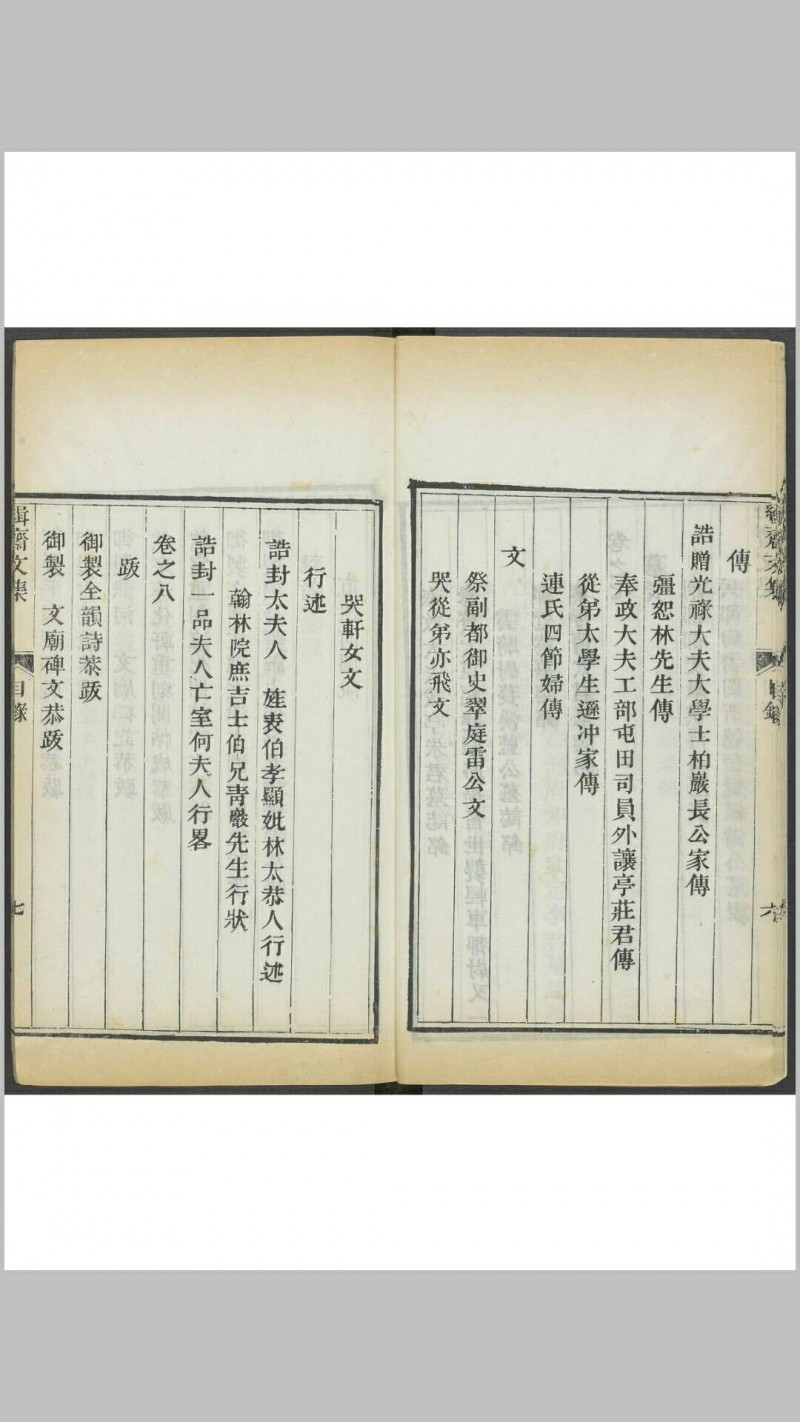 傳
誥贈光祿大夫大學士柏巖長公家傳
彊恕林先生傳
奉政大夫工部屯田司員外讓亭莊君傳
從弟太學生遜冲家傳
連氏四節婦傳
文
祭副都御史翠庭雷公文
哭從弟亦飛文
六
哭軒女文
行述
誥封太夫人　旌表伯孝顯妣林太恭人行述
翰林院庶吉士伯兄靑巖先生行狀
誥封一品夫人亡室何夫人行畧
卷之八
跋
御製全韻詩恭跋
御製　文廟碑文恭跋
緝齋文集　目錄　七